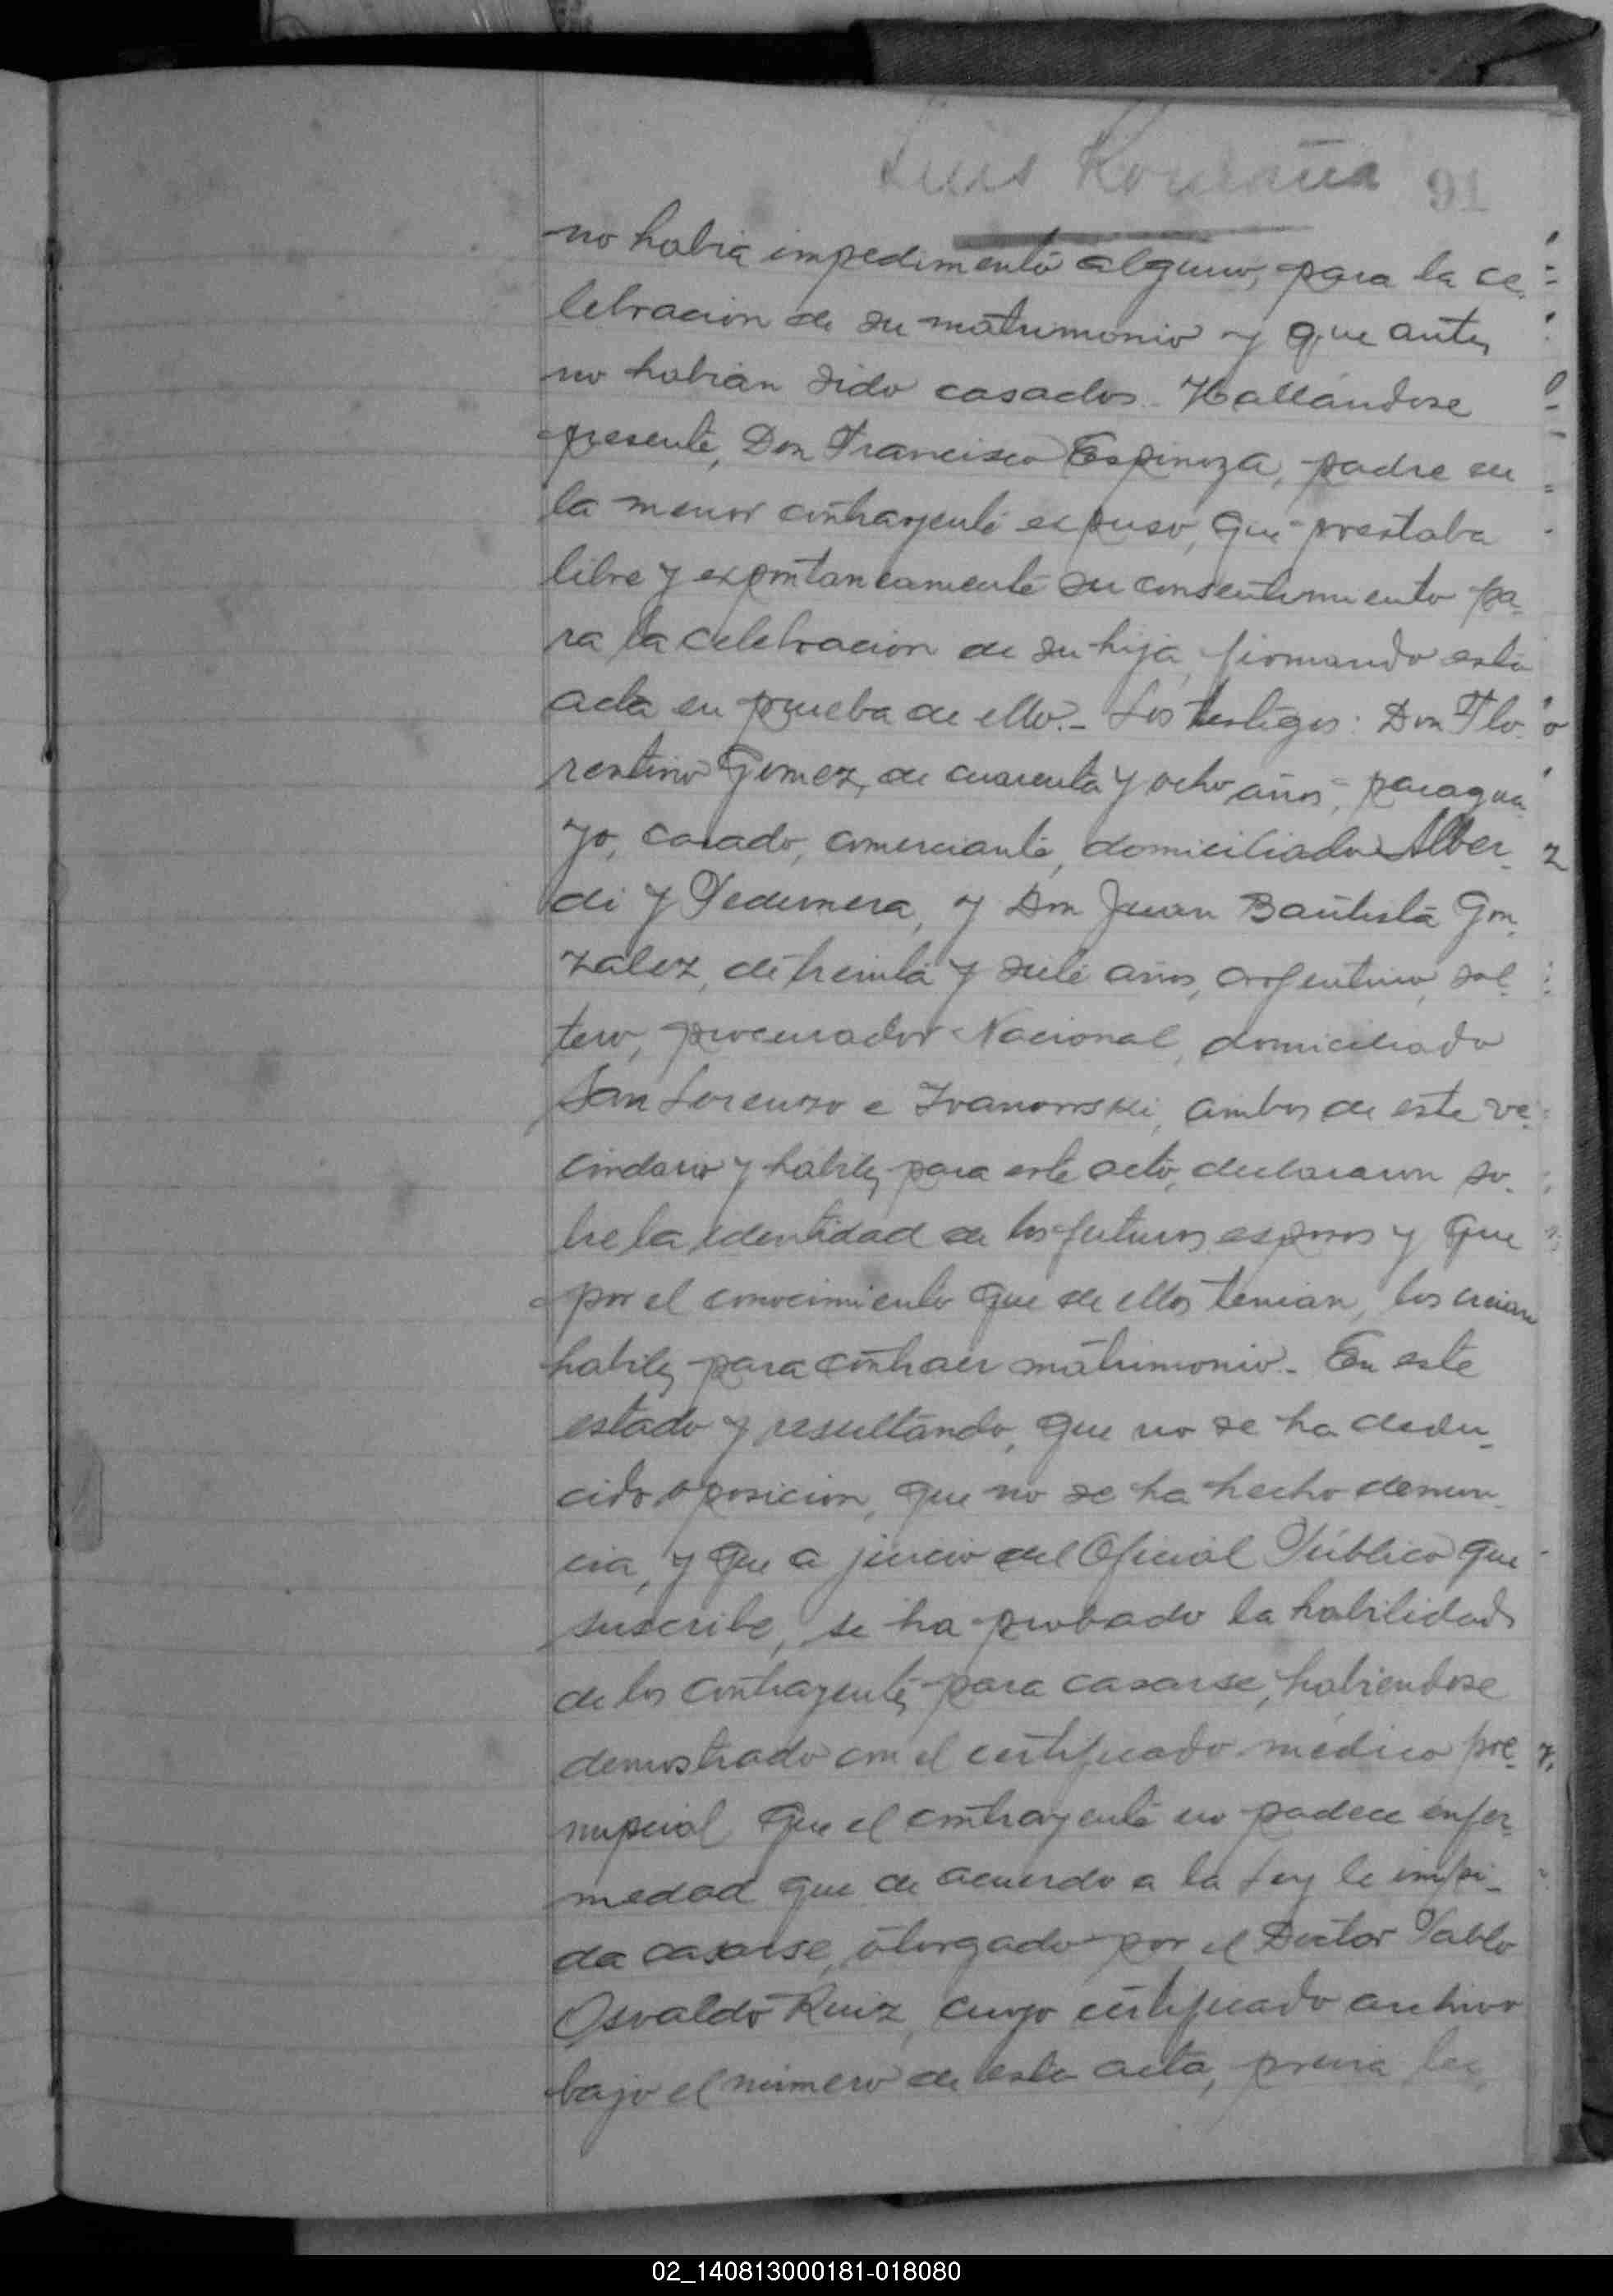 Luis Romaña 91
no habia impedimento alguno, para la ce-
lebracion de su matrimonio y que antes
no habian sido casados. Hallándose
presente, Don Francisco Espinoza, padre en
la menor contrayente expuso, que prestaba
libre y expontaneamente su consentimiento pa-
ra la celebracion de su hija, firmando esta
acta en prueba de ello.- Los testigos: Don Flo-
rentino Gomez, de cuarenta y ocho años, paragua-
yo, casado, comerciante, domiciliado Alber-
di y Pedernera, y Don Juan Bautista Gon-
zalez, de treinta y siete años, argentino, sol-
tero, procurador Nacional, domiciliado
San Lorenzo e Ivanowski, ambos de este ve-
cindario y habiles para este acto, declararon so-
bre la identidad de los futuros esposos y que
por el conocimiento que de ellos tenian, los creian
habiles para contraer matrimonio.- En este
estado y resultando, que no se ha dedu-
cido oposicion, que no se ha hecho denun-
cia, y que a juicio del Oficial Público que
suscribe, se ha probado la habilidad
de los contrayentes para casarse, habiendose
demostrado con el certificado médico pre-
nupcial que el contrayente no padece enfer-
medad que de acuerdo a la Ley le impi-
da casarse, otorgado por el Doctor Pablo
Osvaldo Ruiz, cuyo certificado archivo
bajo el número de esta acta, previa lec
02_140813000181-018080